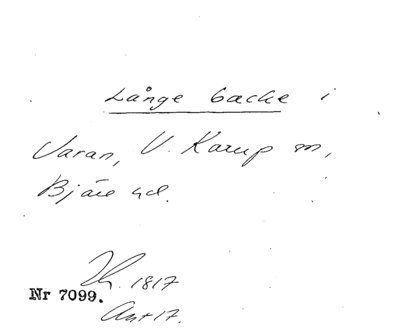 Långe backe i
Varan, V. Karup sn,
Bjäre hd.
1817
Nr 7099.
Ant 17.